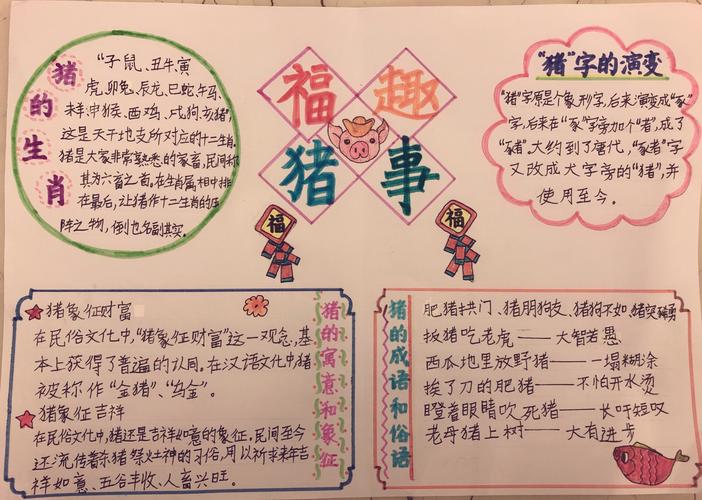 猪的生肖
“子鼠、丑牛、寅
虎、卯兔、辰龙、巳蛇、午马、
未羊、申猴、酉鸡、戌狗、亥猪”,
这是天干地支所对应的十二生肖.
猪是大家非常熟悉的家畜,民间称
其为六畜之首。在生肖属相中排
在最后,让猪作十二生肖的压
阵之物,倒也名副其实.
福 趣
猪 事
福
福
“猪”字的演变
“猪”字原是个象形字,后来演变成“豕”
字,后来在“豕”字旁加个“者”,成了
“豬”.大约到了唐代,“豕者”字
又改成犬字旁的“猪”,并
使用至今。
猪的寓意和象征
猪象征财富
在民俗文化中,“猪象征财富”这一观念,基
本上获得了普遍的认同。在汉语文化中猪
被称作“金猪”、“乌金”。
猪象征吉祥
在民俗文化中,猪还是吉祥如意的象征。民间至今
还流传着杀猪祭灶神的习俗,用以祈求来年吉
祥如意、五谷丰收、人畜兴旺。
猪的成语和俗语
肥猪拱门、猪朋狗友、猪狗不如、猪突豨勇
扮猪吃老虎——大智若愚
西瓜地里放野猪——一塌糊涂
挨了刀的肥猪——不怕开水烫
瞪着眼睛吹死猪——长吁短叹
老母猪上树——大有进步